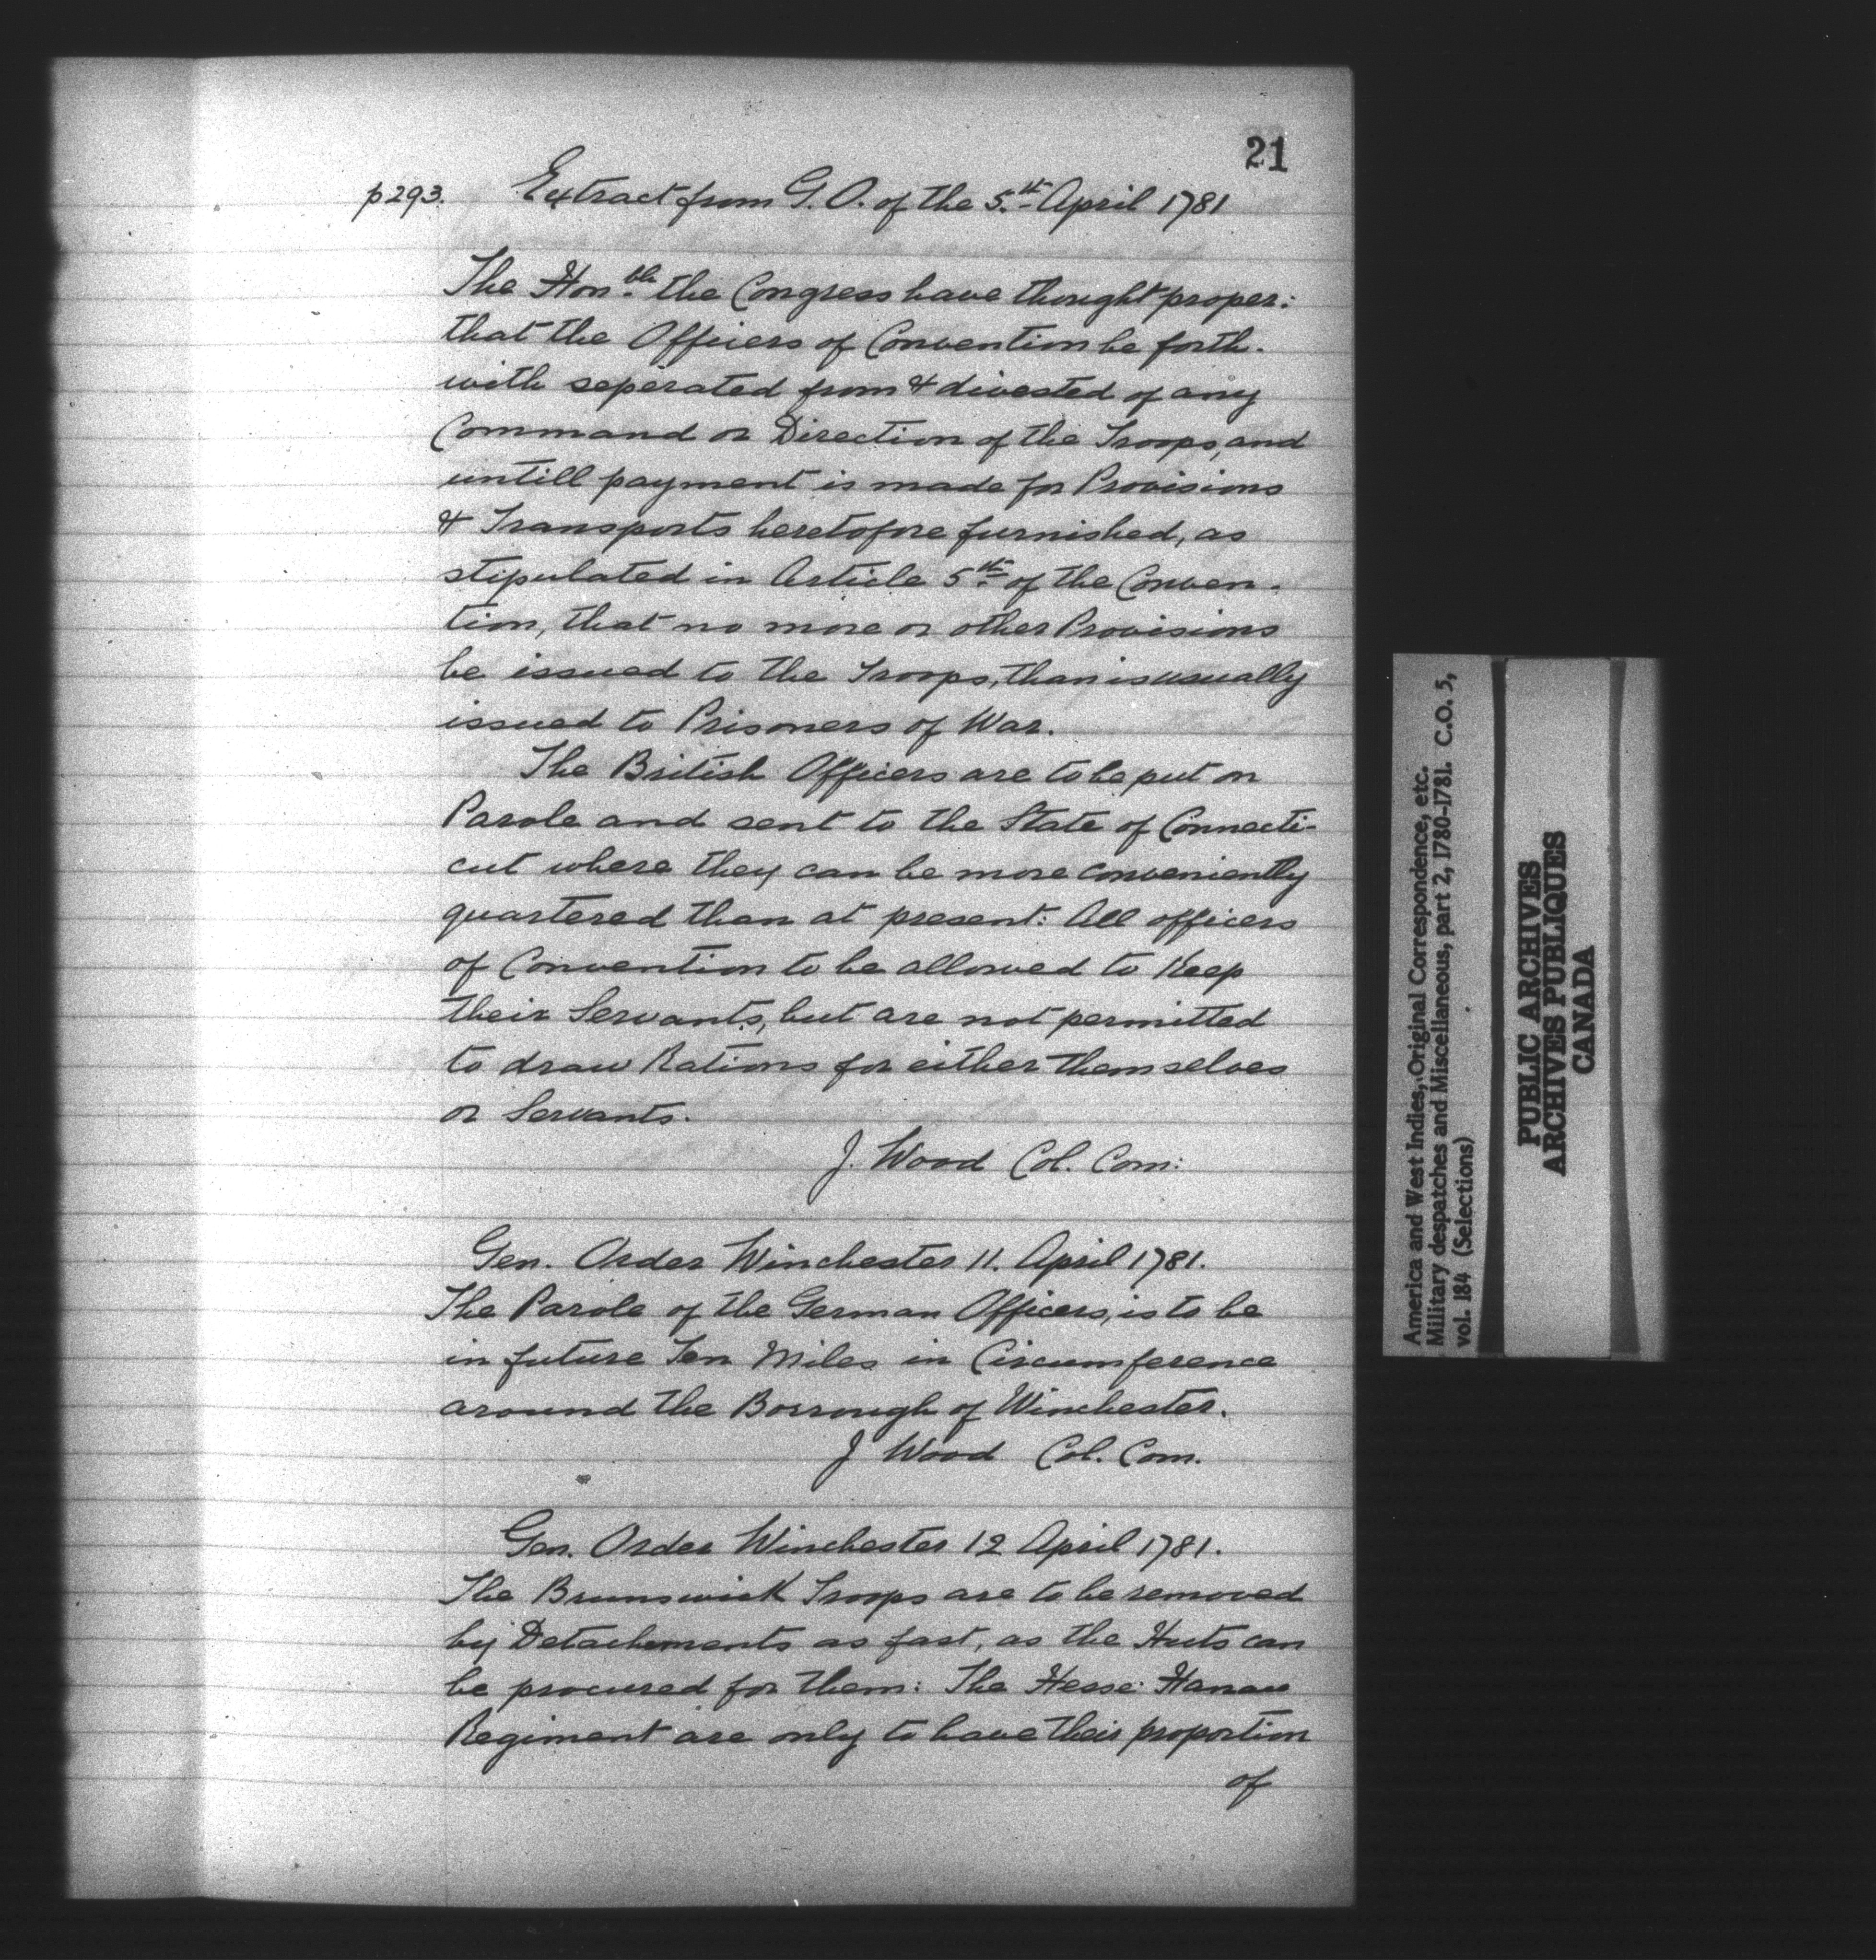 21
p293. Extract from G.O. of the 5.th April 1781
The Hon.ble the Congress have thought proper:
that the Officers of Convention be forth-
with seperated from & divested of any
Command or Direction of the Troops, and
untill payment is made for Provisions
& Transports heretofore furnished, as
stipulated in Article 5th of the Conven-
tion, that no more or other Provisions
be issued to the Troops, than is usually
issued to Prisoners of War.
The British Officers are to be put on
Parole and sent to the State of Connecti-
cut where they can be more conveniently
quartered than at present: All officers
of Convention to be allowed to Keep
their Servants, but are not permitted
to draw Rations for either themselves
or Servants.
J. Wood Col. Com:
Gen. Order Winchester 11. April 1781.
The Parole of the German Officers, is to be
in future Ten Miles in Circumference
around the Borrough of Winchester.
J Wood Col. Com.
Gen. Order Winchester 12 April 1781.
The Brunswick Troops are to be removed
by Detachements as fast, as the Huts can
be procured for them: The Hesse Hanau
Regiment are only to have their proportion
of
America and West Indies, Original Correspondence, etc.
Military despatches and Miscellaneous, part 2, 1780-1781. C.O. 5,
vol. 184 (Selections)
PUBLIC ARCHIVES
ARCHIVES PUBLIQUES
CANADA